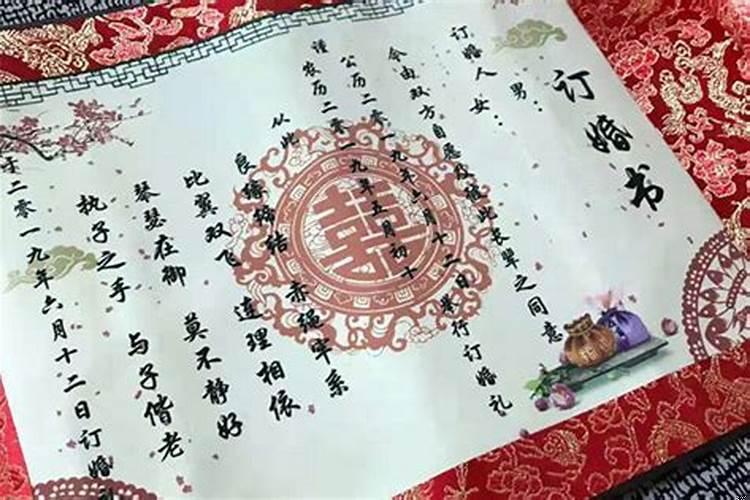 订婚书
男:
订婚人
女:
今由双方自愿及彼此长辈之同意
谨
公历二零一九年六月十二日举行订婚礼
农历二零一九年五月初十
从此
良缘缔结 赤绳牢系
比翼双飞 连理相依
琴瑟在御 莫不静好
执子之手 与子偕老
于二零一九年六月十二日订婚